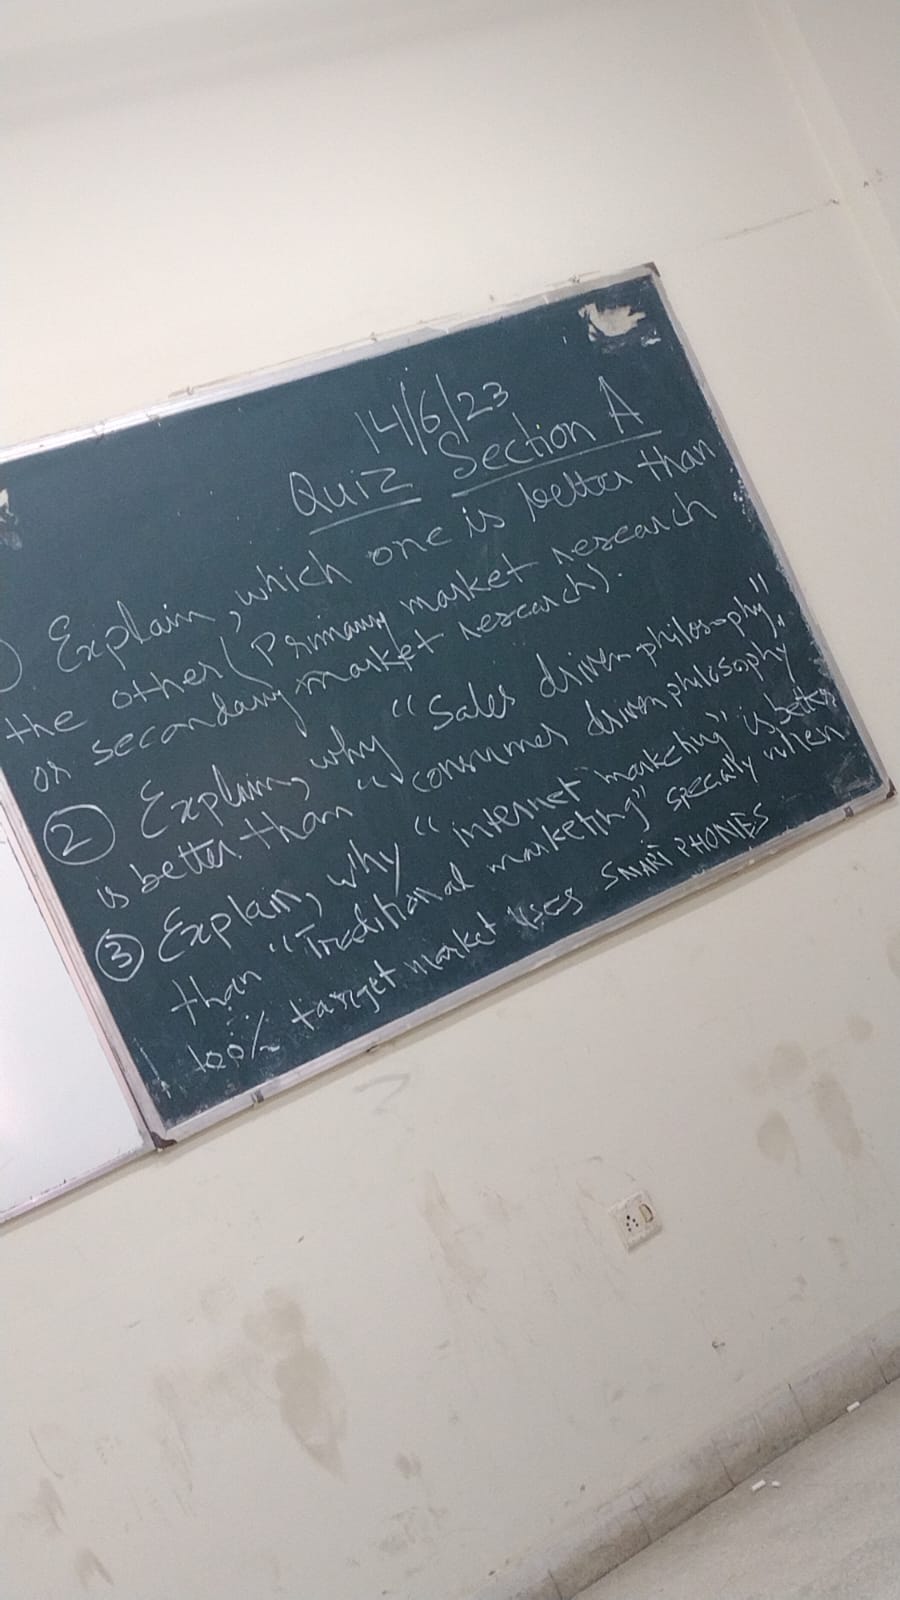 14/6/23
Quiz Section A
) Explain, which one is better than
the other (Primary market research
or secondary market research).
② Explain, why "Sales driven philosophy"
is better than "consumer driven philosophy
③ Explain, why "internet marketing" is better
than "Traditional marketing" specally when
100% target market uses SMART PHONES